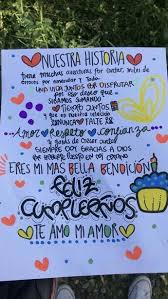 NUESTRA HISTORIA
tiene muchas aventuras por contar, miles de
errores por enmendar y toda
UNA VIDA JUNTOS POR DISFRUTAR
por eso deseo que
SIGAMOS SUMANDO
TIEMPO JUNTOS
y que en nuestra relación
NUNCA FALTE EL
Amor, respeto y confianza
y ganas de crecer juntos
SIEMPRE CON GRACIAS A DIOS
por
ERES MI MAS BELLA BENDICION
FELIZ
CUMPLEAÑOS
TE AMO MI AMOR